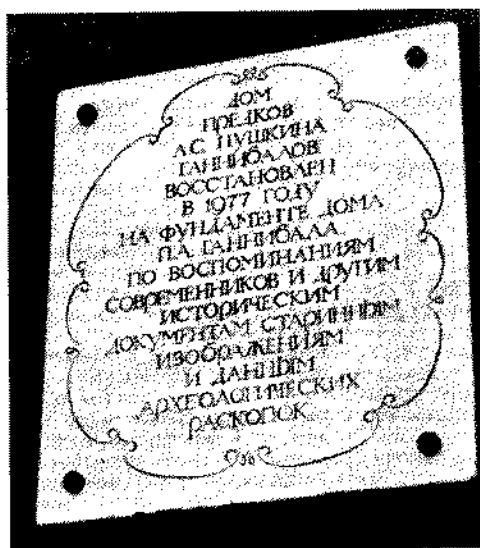 ДОМ
ПРЕДКОВ
А.С. ПУШКИНА
ГАННИБАЛОВ
ВОССТАНОВЛЕН
В 1977 ГОДУ
НА ФУНДАМЕНТЕ ДОМА
П.А. ГАННИБАЛА
ПО ВОСПОМИНАНИЯМ
СОВРЕМЕННИКОВ И ДРУГИМ
ИСТОРИЧЕСКИМ
ДОКУМЕНТАМ СТАРИННЫМ
ИЗОБРАЖЕНИЯМ
И ДАННЫМ
АРХЕОЛОГИЧЕСКИХ
РАСКОПОК